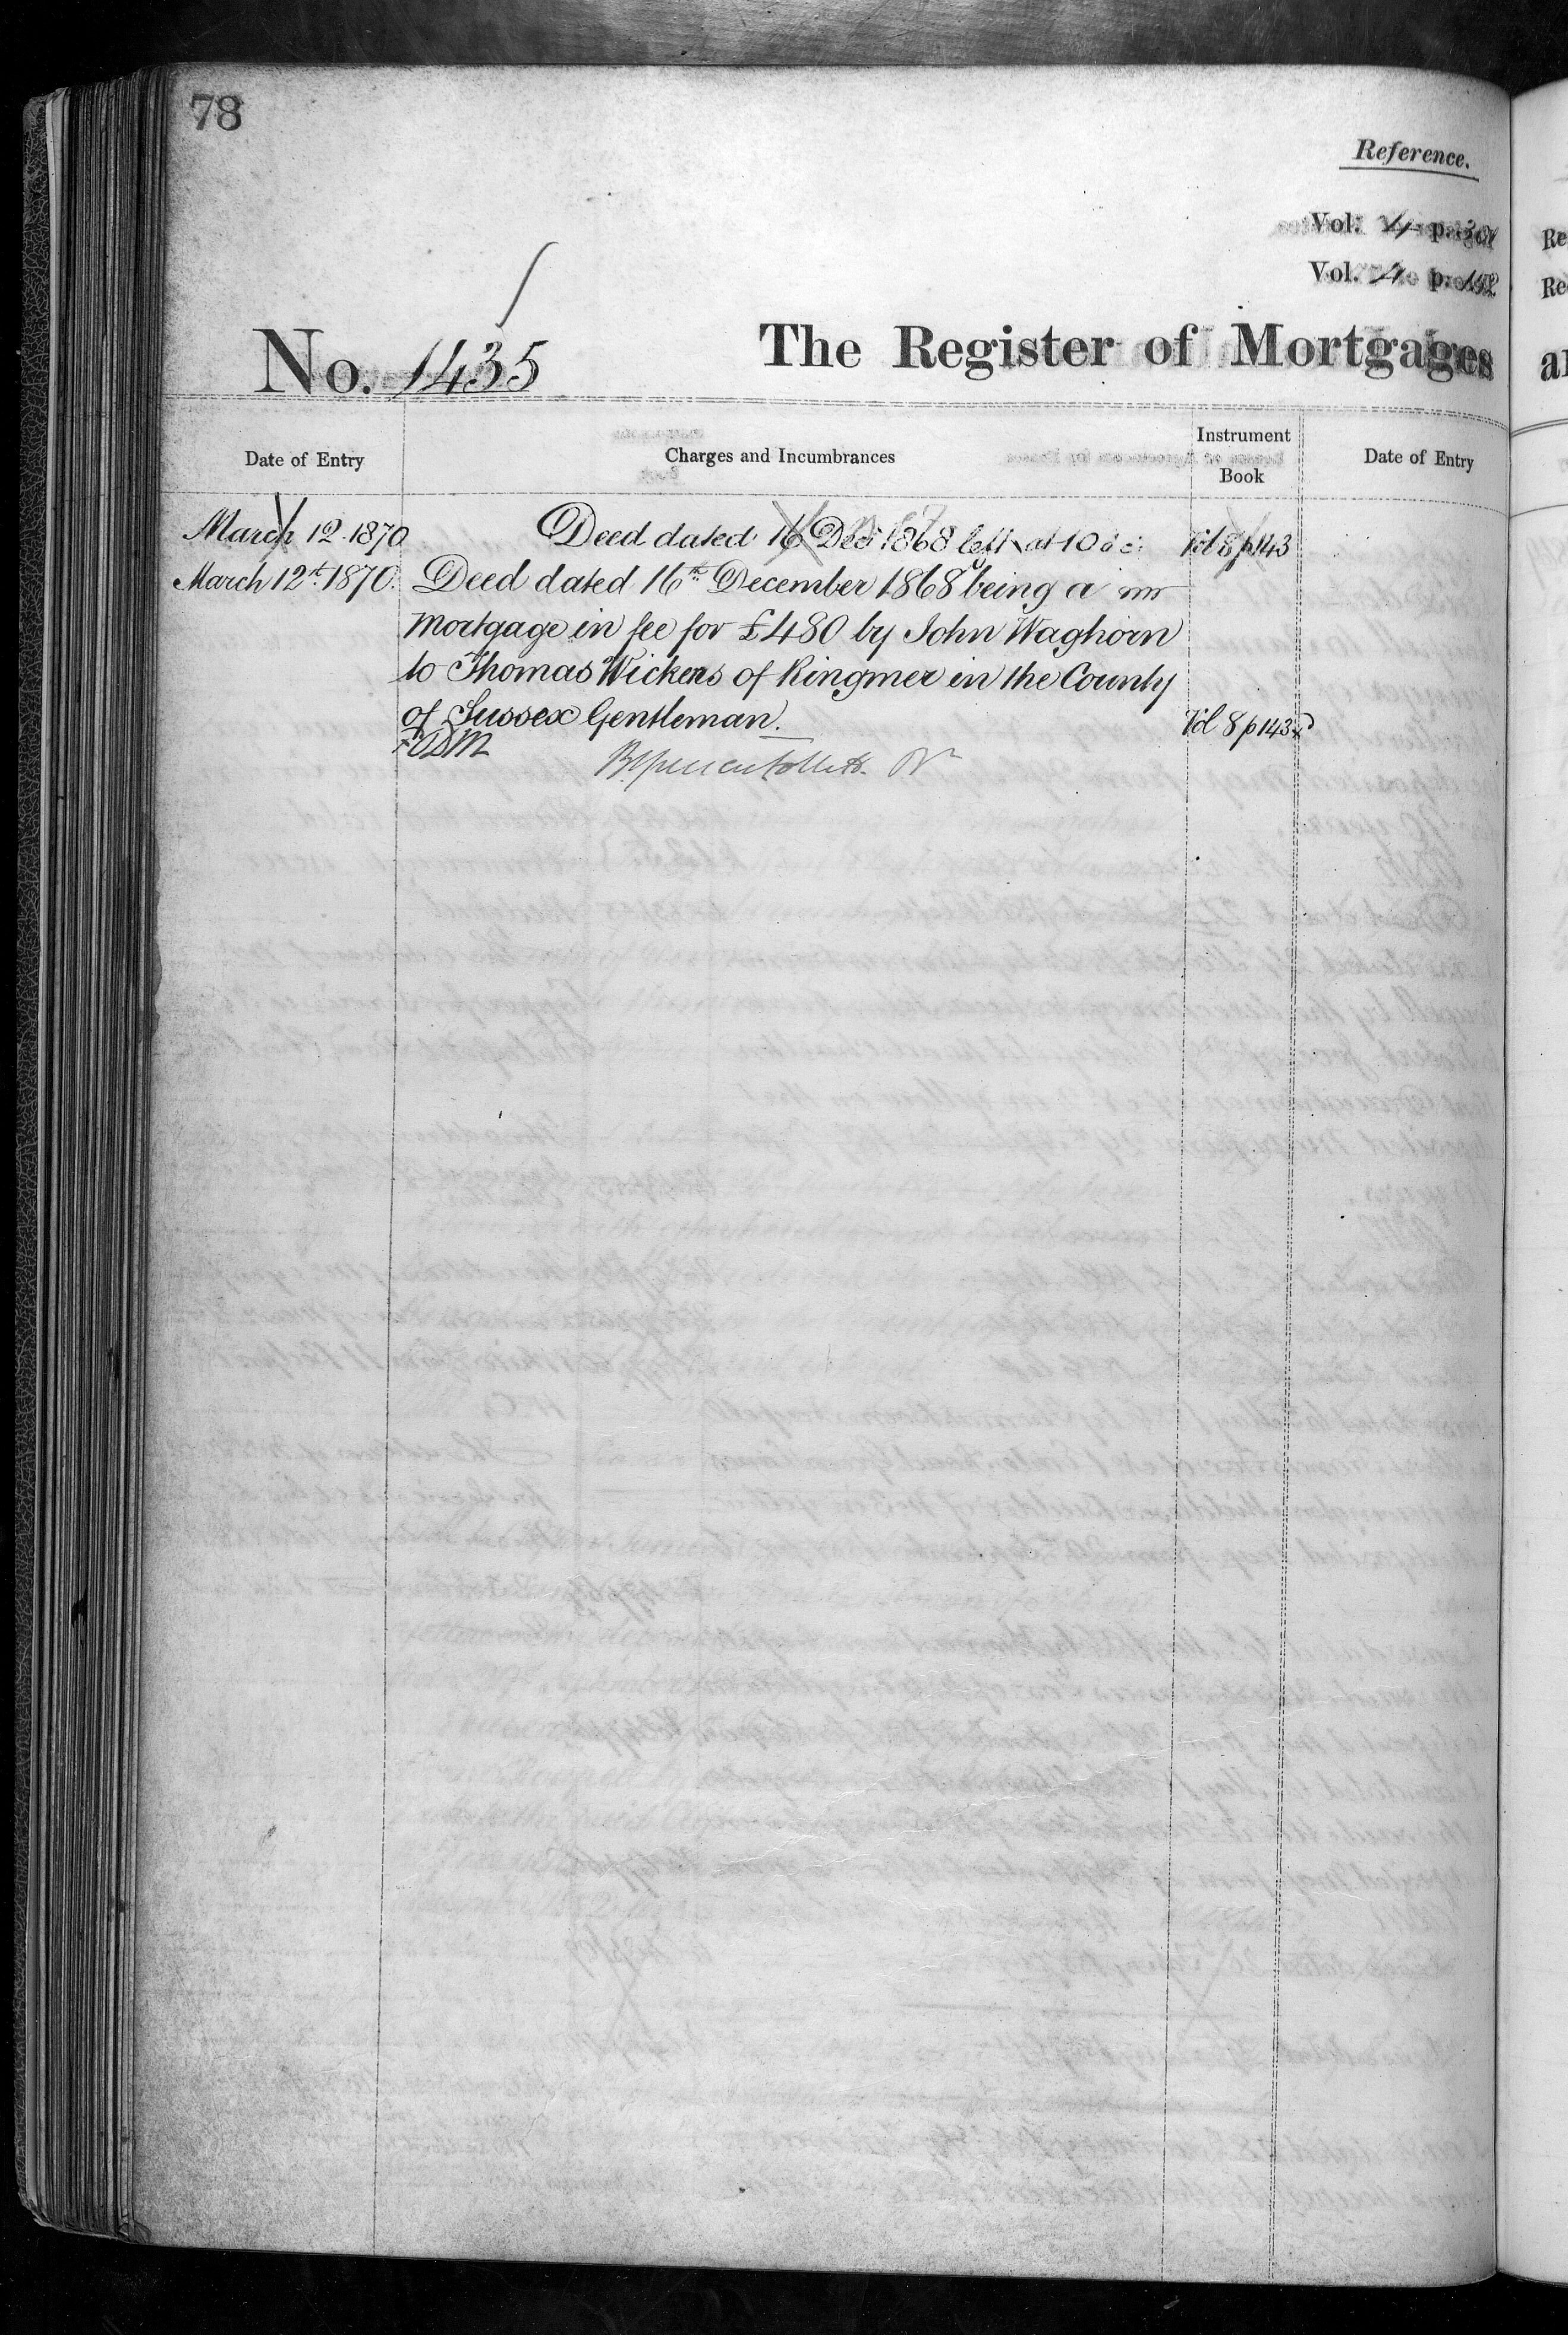 78
Reference.
Vol: 4 p.
Vol. 4 p.
No. 1435 The Register of Mortgages
Date of Entry Charges and Incumbrances Instrument Book Date of Entry
March 12 1870 Deed dated 16 Dec 1868 left at 10 Vol 8 p 143
March 12th 1870. Deed dated 16th December 1868 being a
Mortgage in fee for £480 by John Waghorn
to Thomas Wickens of Ringmer in the County
of Sussex Gentleman. Vol 8 p 143